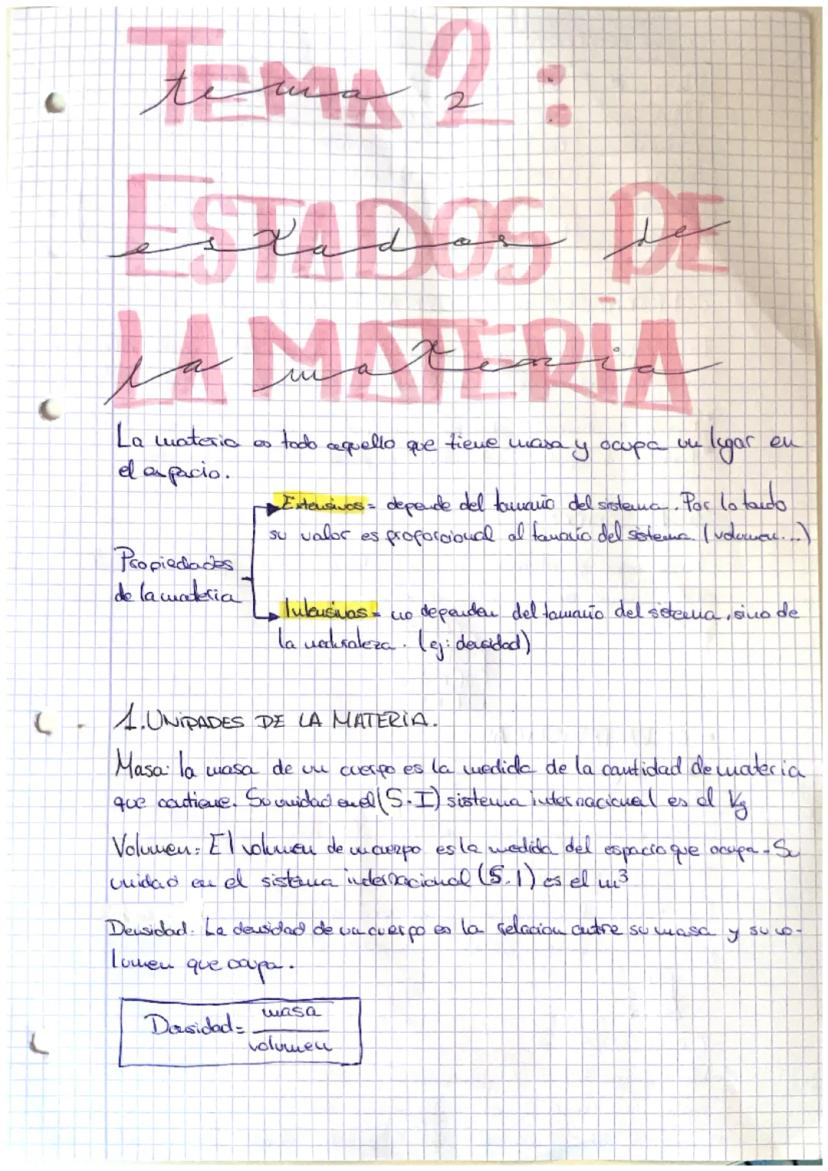 TEMA 2:
tema 2
ESTADOS DE
estados de
LA MATERIA
la materia
La materia es todo aquello que tiene masa y ocupa un lugar en
el espacio.
Extensivas = depende del tamaño del sistema. Por lo tanto
su valor es proporcional al tamaño del sistema. (volumen...)
Propiedades
de la materia
Intensivas = no dependen del tamaño del sistema, sino de
la naturaleza. (ej: densidad)
1. UNIDADES DE LA MATERIA.
Masa: la masa de un cuerpo es la medida de la cantidad de materia
que contiene. Su unidad en el (S.I) sistema internacional es el Kg
Volumen: El volumen de un cuerpo es la medida del espacio que ocupa. Su
unidad en el sistema internacional (S.I) es el m³
Densidad: La densidad de un cuerpo es la relacion entre su masa y su vo-
lumen que ocupa.
Densidad = masa
volumen